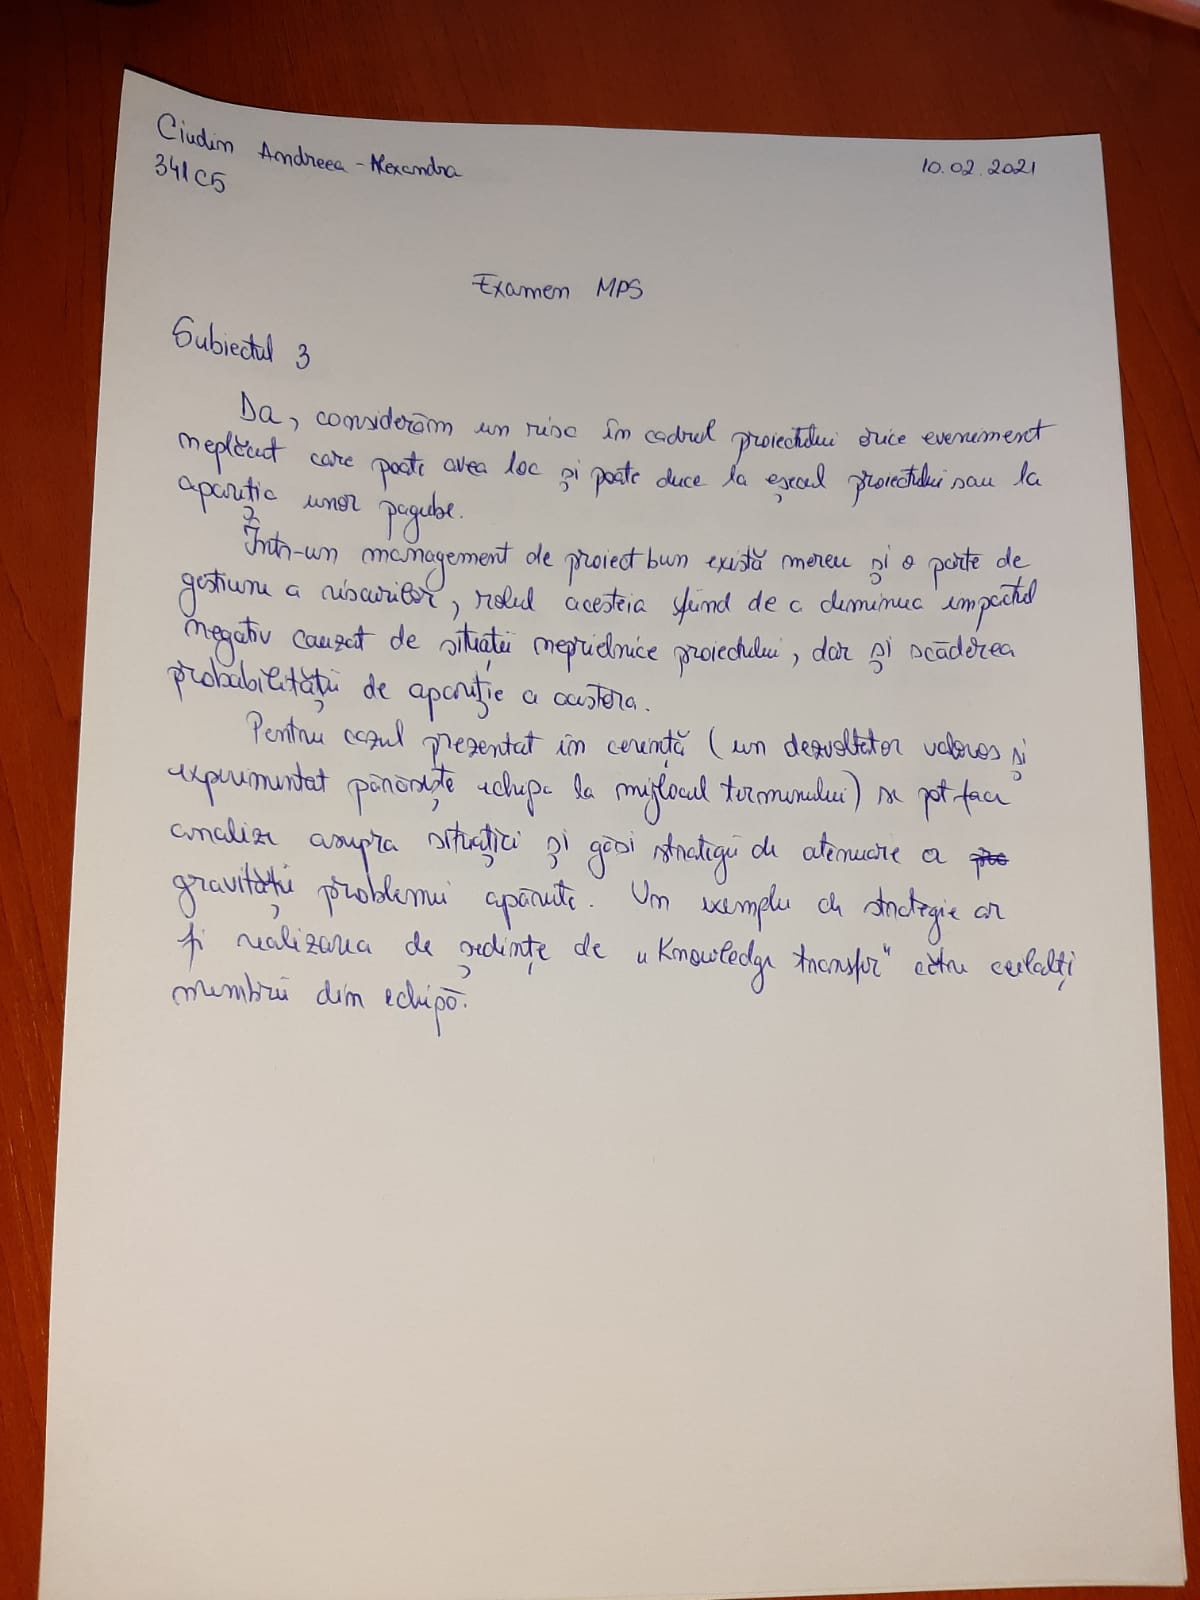 Ciudin Andreea-Alexandra
10.02.2021
341C5
Examen MPS
Subiectul 3
Da, considerăm un risc în cadrul proiectului orice eveniment
neplăcut care poate avea loc și poate duce la eșecul proiectului sau la
apariția unor pagube.
Într-un management de proiect bun există mereu și o parte de
gestiune a riscurilor, rolul acesteia fiind de a diminua impactul
negativ cauzat de situații neprielnice proiectului, dar și scăderea
probabilității de apariție a acestora.
Pentru cazul prezentat în cerință (un dezvoltator valoros și
experimentat părăsește echipa la mijlocul termenului) se pot face
analize asupra situației și găsi strategii de atenuare a
gravității problemei apărute. Un exemplu de strategie ar
fi realizarea de ședințe de „Knowledge transfer" către ceilalți
membrii din echipă.